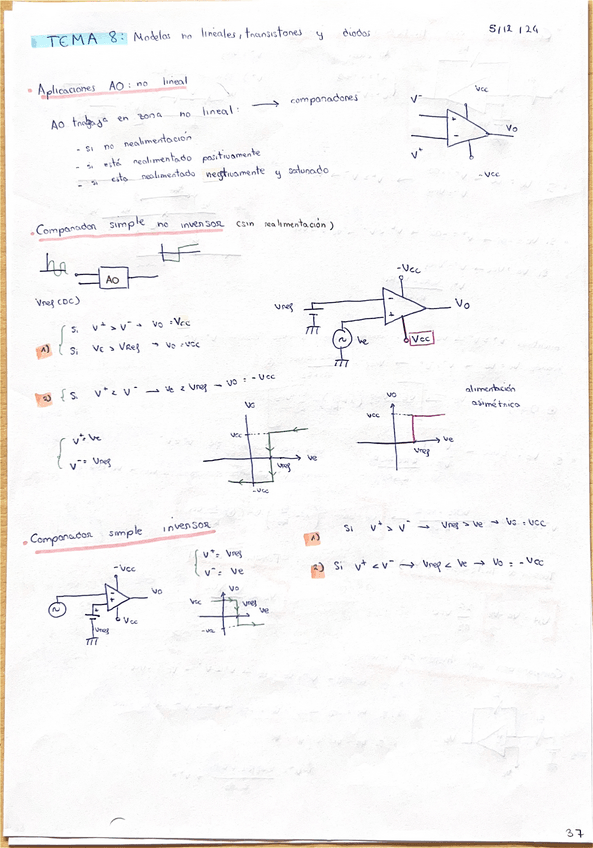 TEMA 8: Modelos no lineales, transistores y diodos
5/12/24
Aplicaciones AO: no lineal
AO trabaja en zona no lineal: → comparadores
- si no realimentación
- si está realimentado positivamente
- si esta realimentado negativamente y saturado
Vcc
V⁻
+
-
Vo
V⁺
-Vcc
Comparador simple no inversor (sin realimentación)
AO
Vref (DC)
1) Si V⁺ > V⁻ → Vo = Vcc
Si Ve > VRef → Vo = Vcc
-Vcc
Vref
-
+
Vo
Ve
Vcc
2) Si V⁺ < V⁻ → Ve < Vref → Vo = -Vcc
V⁺ = Ve
V⁻ = Vref
Vo
Vcc
Ve
Vref
-Vcc
Vo
Vcc
Ve
Vref
alimentación
asimétrica
Comparador simple inversor
V⁺ = Vref
V⁻ = Ve
1) Si V⁺ > V⁻ → Vref > Ve → Vo = Vcc
2) Si V⁺ < V⁻ → Vref < Ve → Vo = -Vcc
-Vcc
-
+
Vo
Vcc
Vref
Vo
Vcc
Vref
Ve
37